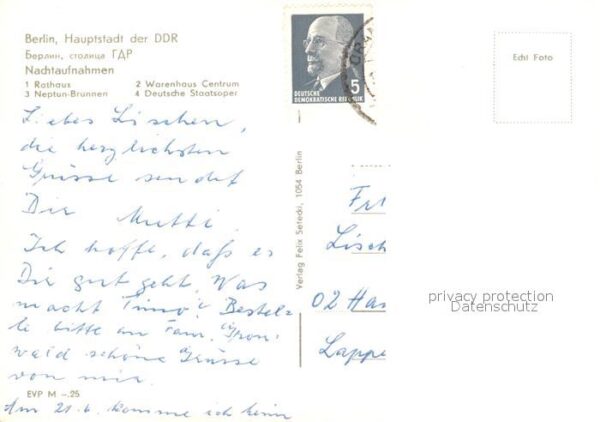 Berlin, Hauptstadt der DDR
Берлин, столица ГДР
Nachtaufnahmen
1 Rathaus 2 Warenhaus Centrum
3 Neptun-Brunnen 4 Deutsche Staatsoper
DEUTSCHE
DEMOKRATISCHE REPUBLIK 5
Echt Foto
Liebes Lischen,
die herzlichsten
Grüsse sendet
Dir Mutti.
Ich hoffe, daß es
Dir gut geht. Was
macht Timo? Bestel-
le bitte an Fam. Gron-
wald schöne Grüsse
von mir.
Am 21.6. komme ich heim
EVP M –.25
Verlag Felix Setecki, 1054 Berlin
Frl
Lisch
02 Ha
Lappe
privacy protection
Datenschutz